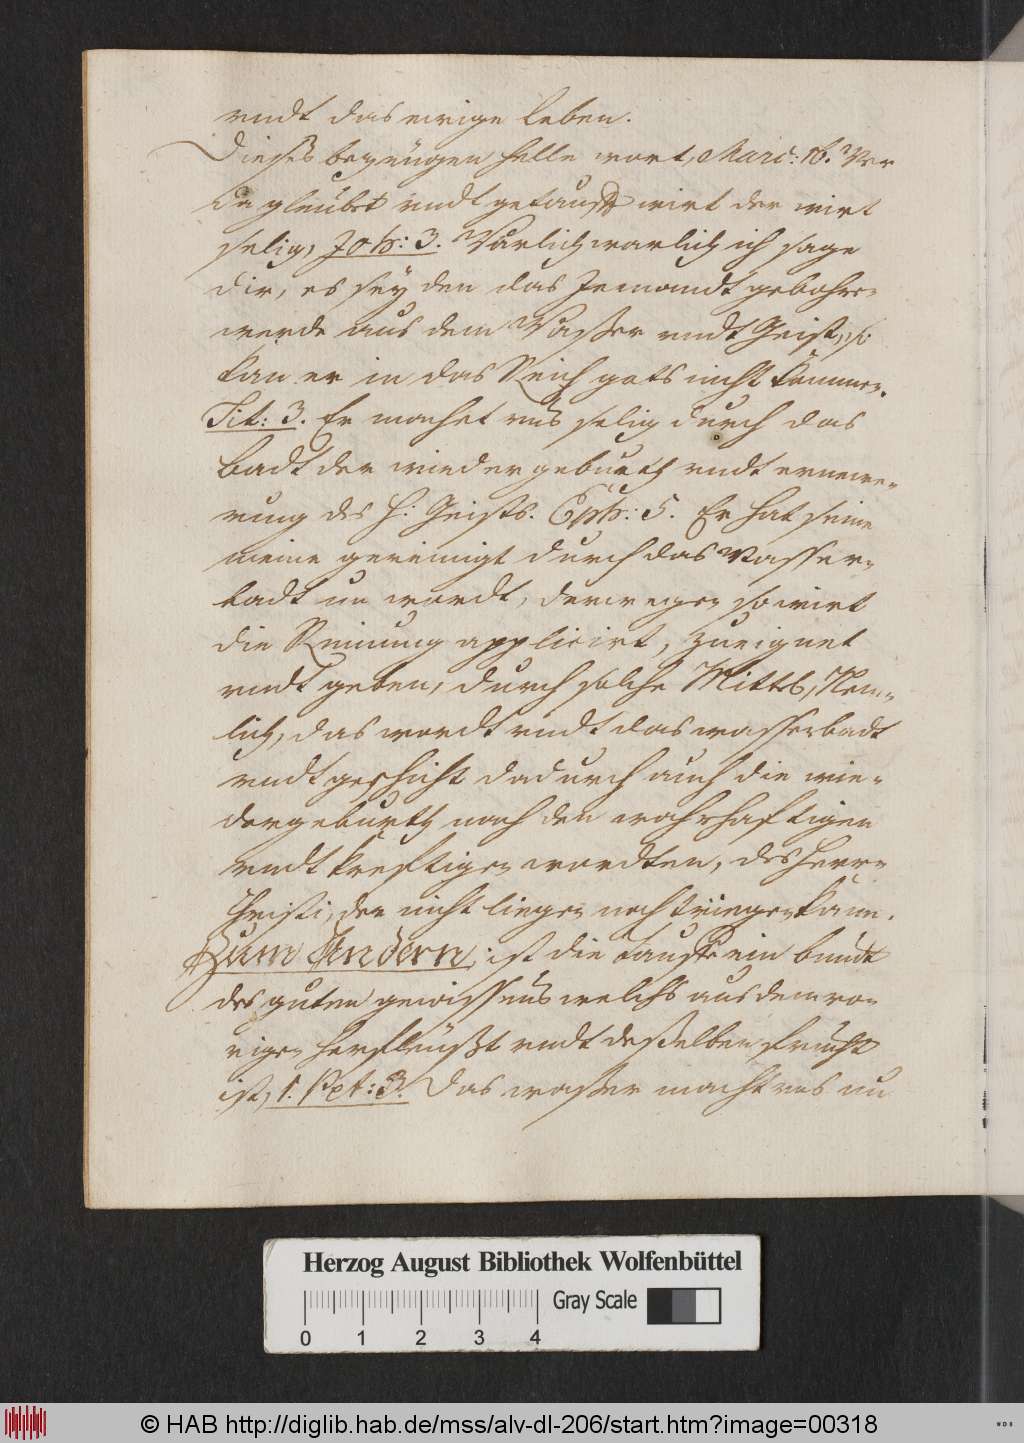 vndt das ewige leben.
Dieses bezeugen helle wort, Marc: 16. Wer
da gleubet vndt getaufft wirt der wirt
selig, Joh: 3. Warlich warlich ich sage
dir, es sey den das Jemandt gebohren
werde aus dem Wasser vndt Geist, so
kan er in das Reich gots nicht kommen.
Tit: 3. Er machet vns selig durch das
badt der wiedergeburth vndt ernewe-
rung des H: Geists. Eph: 5. Er hat seine
meine gereinigt durch das Wasser-
badt im wordt, derwegen so wirt
die Reinung applicirt, zueignet
vndt geben, durch solche Mittel, Nem-
lich, das wordt vndt das wasserbadt
vndt geschicht dadurch auch die wie-
dergeburth nach den wahrhafftigen
vndt krefftigen wordten, des Herrn
Christi, der nicht liegen noch triegen kann.
Zum Andern, ist die tauffe ein bundt
des guten gewissens welchs aus dem vo-
rigen herfleußt vndt desselben frucht
ist, 1. Pet: 3. Das wasser macht vns nu
Herzog August Bibliothek Wolfenbüttel
Gray Scale
0 1 2 3 4
© HAB http://diglib.hab.de/mss/alv-dl-206/start.htm?image=00318